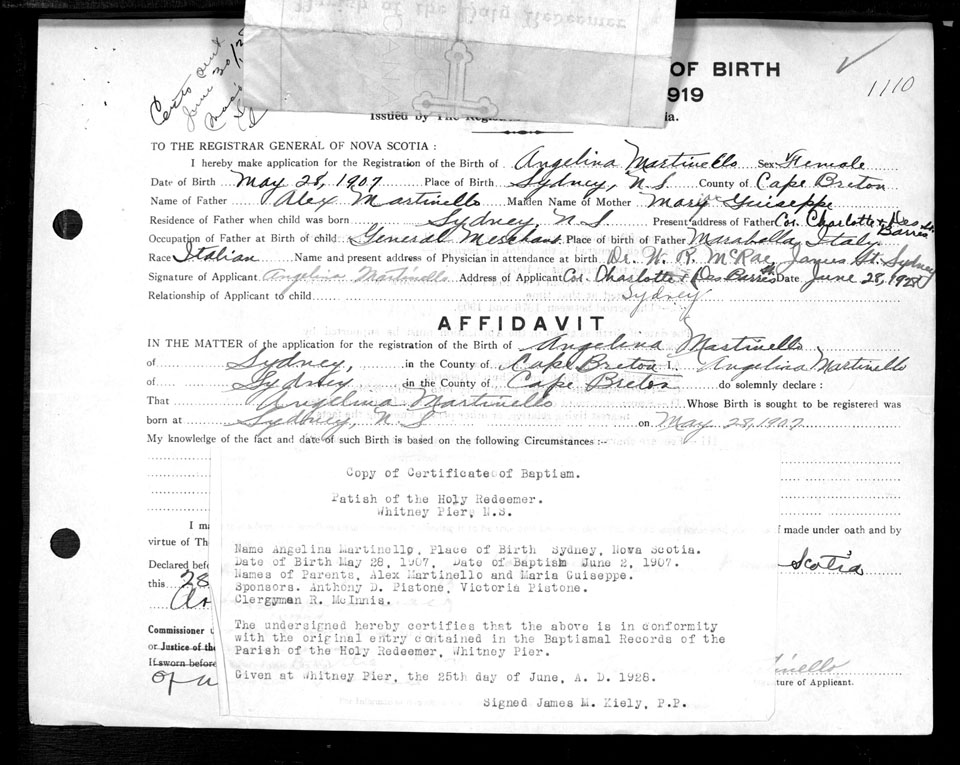 Parish of the Holy Redeemer
OF BIRTH
1919
1110
Certo sent
June 30/28
Issued by The Regist
TO THE REGISTRAR GENERAL OF NOVA SCOTIA :
I hereby make application for the Registration of the Birth of Angelina Martinello Sex Female
Date of Birth May 28, 1907 Place of Birth Sydney, N.S County of Cape Breton
Name of Father Alex Martinello Maiden Name of Mother Mary Guiseppe
Residence of Father when child was born Sydney, N.S Present address of Father Cor. Charlotte & Des Barres St.
Occupation of Father at Birth of child General Merchant Place of birth of Father Marabella, Italy
Race Italian Name and present address of Physician in attendance at birth Dr. W. R. McRae, James St. Sydney
Signature of Applicant Angelina Martinello Address of Applicant Cor. Charlotte & Des Barres Date June 28, 1928
Relationship of Applicant to child Sydney
AFFIDAVIT
IN THE MATTER of the application for the registration of the Birth of Angelina Martinello
of Sydney, in the County of Cape Breton I, Angelina Martinello
of Sydney in the County of Cape Breton do solemnly declare :
That Angelina Martinello Whose Birth is sought to be registered was
born at Sydney, N S on May 28, 1907
My knowledge of the fact and date of such Birth is based on the following Circumstances :-
Copy of Certificate of Baptism.
Patish of the Holy Redeemer.
Whitney Pier, N.S.
I ma made under oath and by
virtue of Th
Name Angelina Martinello, Place of Birth Sydney, Nova Scotia.
Date of Birth May 28, 1907, Date of Baptism June 2, 1907.
Declared bef Scotia
Names of Parents, Alex Martinello and Maria Guiseppe.
this 28
Sponsors. Anthony D. Pistone, Victoria Pistone.
Clergyman R. McInnis.
The undersigned hereby certifies that the above is in conformity
Commissioner
with the original entry contained in the Baptismal Records of the
or Justice of the
Parish of the Holy Redeemer, Whitney Pier.
If sworn before tinello
Given at Whitney Pier, the 25th day of June, A. D. 1928.
ture of Applicant.
Signed James M. Kiely, P.P.